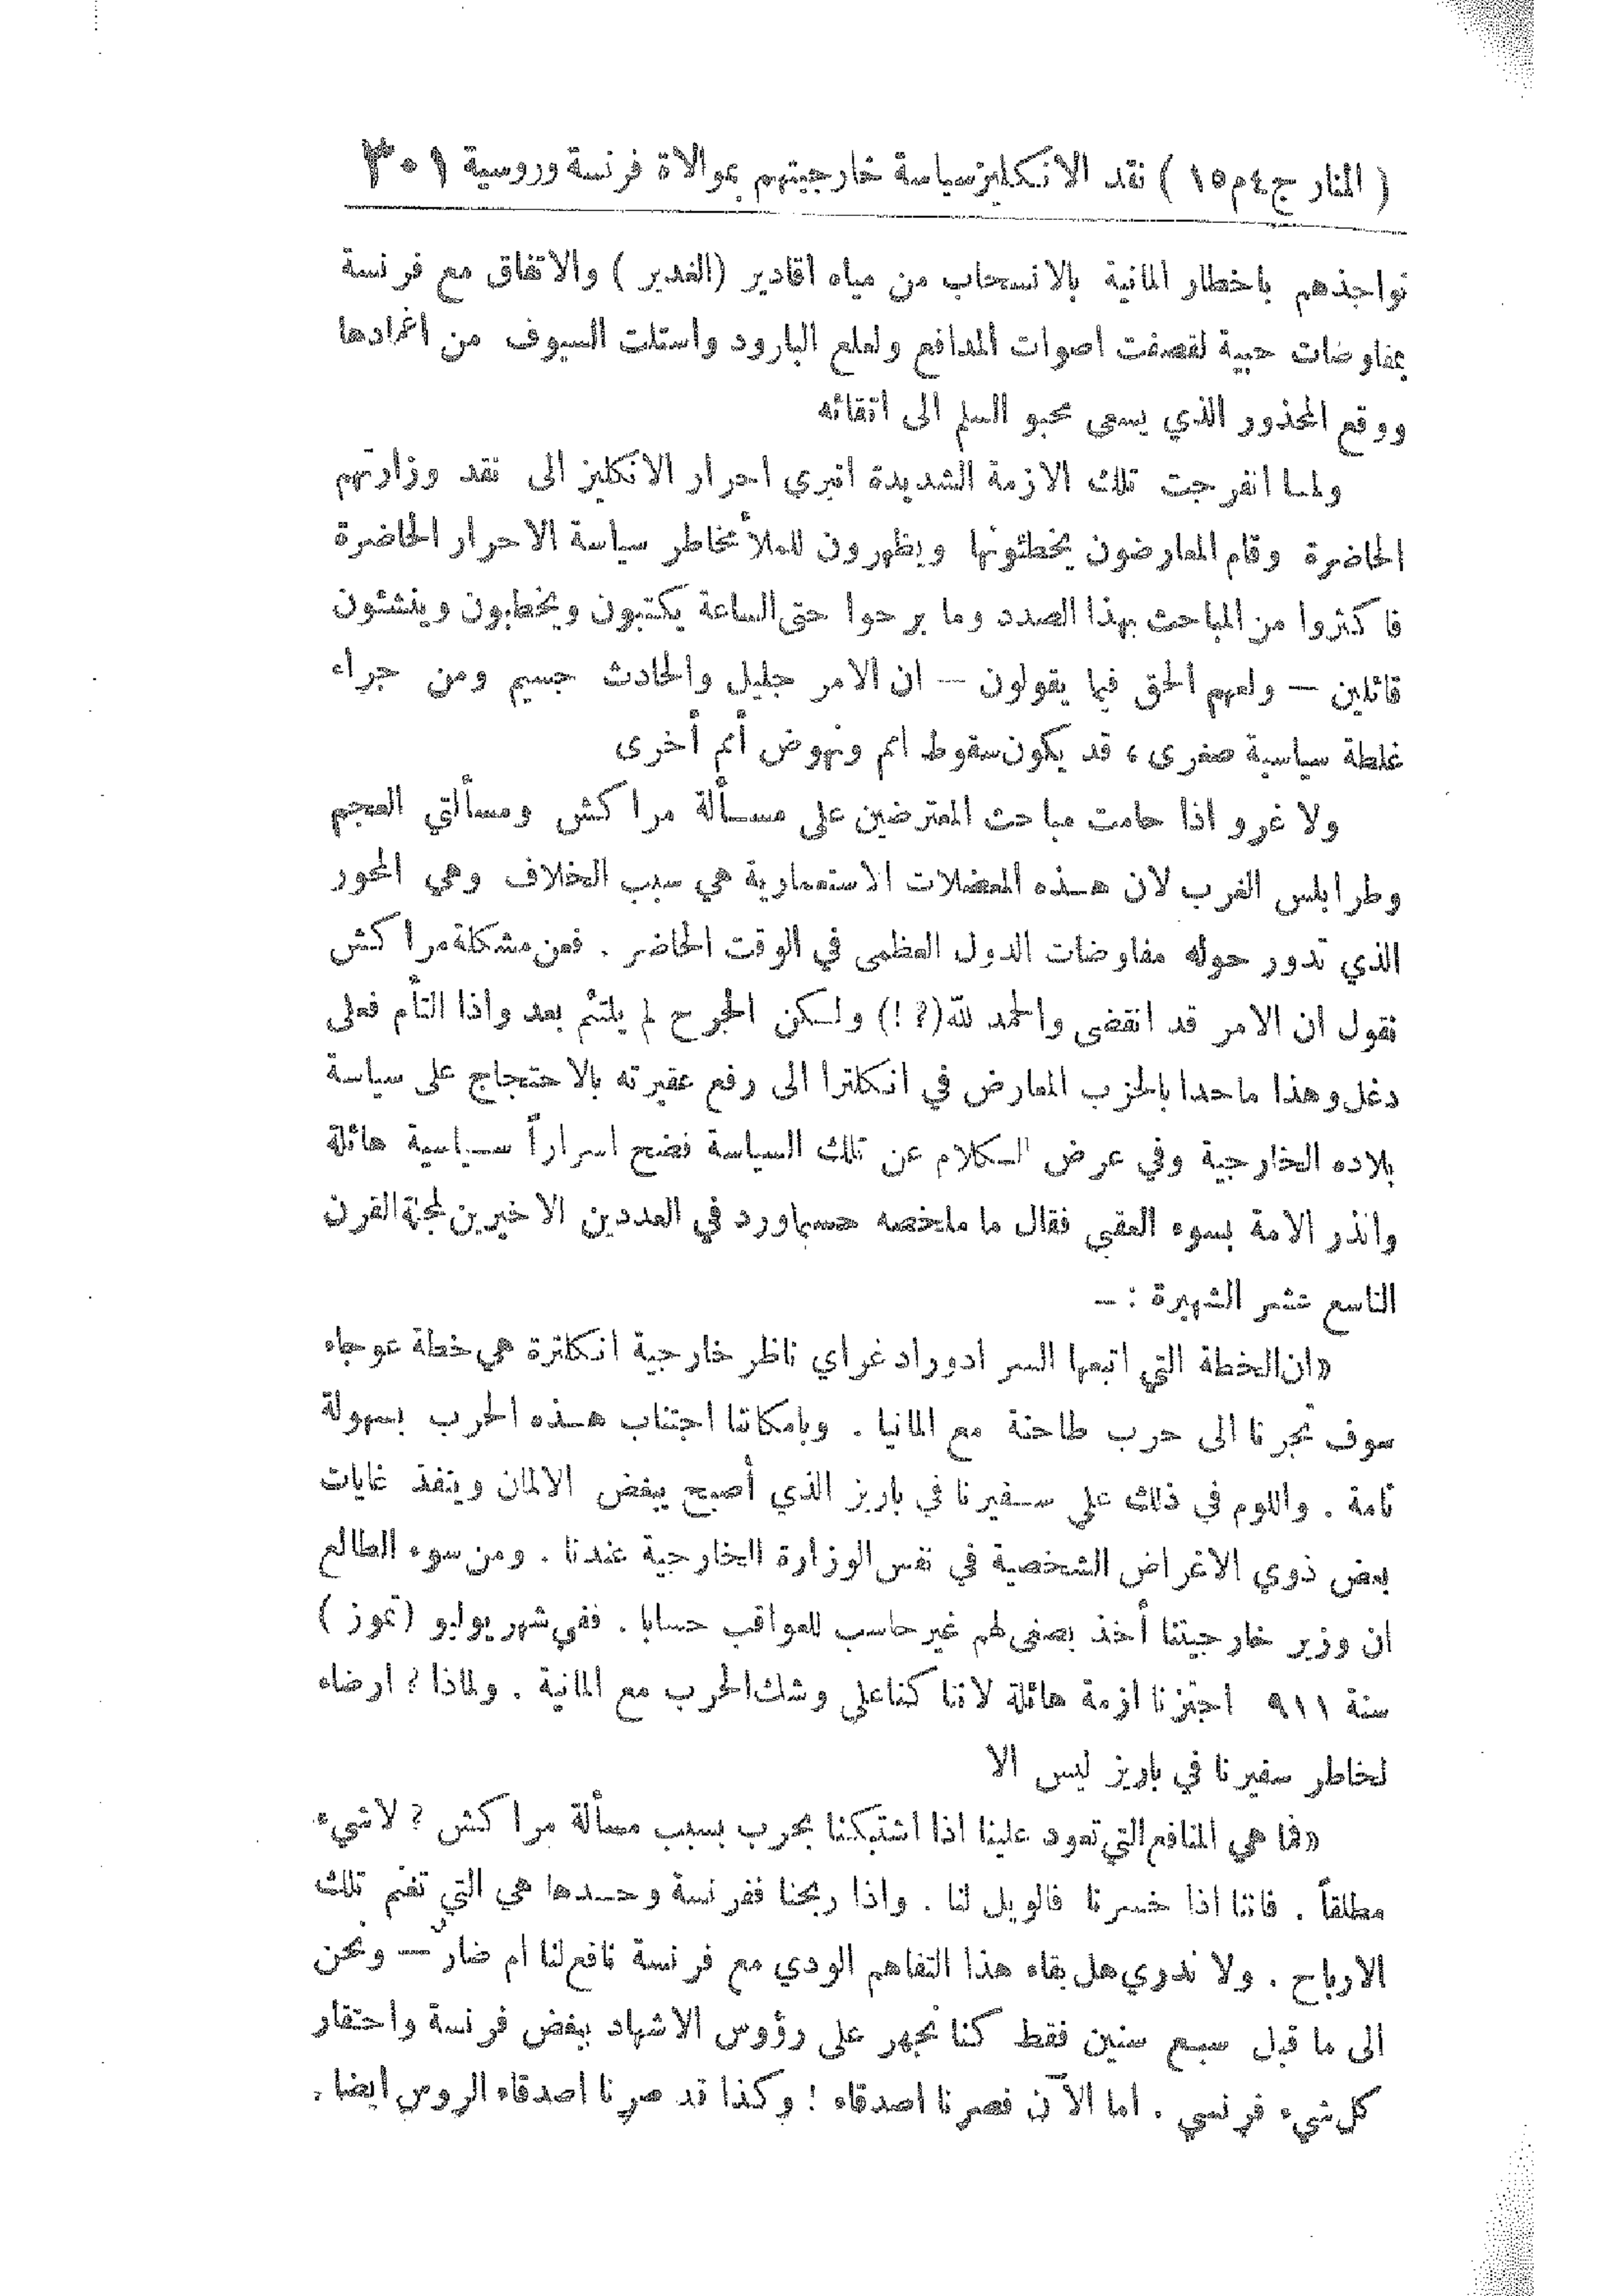 ( المنار ج٤م١٥ ) نقد الانكليز سياسة خارجيتهم بموالاة فرنسة وروسية ٣٠١
نواجذهم باخطار المانية بالانسحاب من مياه اقادير (الغدير ) والاتفاق مع فرنسة
بمفاوضات حبية لقصفت اصوات المدافع ولعلع البارود واستلت السيوف من اغمادها
ووقع المحذور الذي يسعى محبو السلم الى اتقائه
ولما انفرجت تلك الازمة الشديدة انبرى احرار الانكليز الى نقد وزارتهم
الحاضرة وقام المعارضون يخطئونها ويظهرون للملأ مخاطر سياسة الاحرار الحاضرة
فاكثروا من المباحث بهذا الصدد وما برحوا حتى الساعة يكتبون ويخطبون وينشئون
قائلين — ولعهم الحق فيما يقولون — ان الامر جليل والحادث جسيم ومن جراء
غلطة سياسية صغرى ، قد يكون سقوط امم ونهوض أمم أخرى
ولا غرو اذا حامت مباحث المعترضين على مسألة مراكش ومسألتي العجم
وطرابلس الغرب لان هذه المعضلات الاستعمارية هي سبب الخلاف وهي المحور
الذي تدور حوله مفاوضات الدول العظمى في الوقت الحاضر . فعن مشكلة مراكش
نقول ان الامر قد انقضى والحمد لله(؟!) ولكن الجرح لم يلتئم بعد واذا التأم فعلى
دغل وهذا ماحدا بالحزب المعارض في انكلترا الى رفع عقيرته بالاحتجاج على سياسة
بلاده الخارجية وفي عرض الكلام عن تلك السياسة فضح اسراراً سياسية هائلة
وانذر الامة بسوء العقبى فقال ما ملخصه حسبما ورد في العددين الاخيرين لمجلة القرن
التاسع عشر الشهيرة : —
«ان الخطة التي اتبعها السر ادوراد غراي ناظر خارجية انكلترة هي خطة عوجاء
سوف تجرنا الى حرب طاحنة مع المانيا . وبامكاننا اجتناب هذه الحرب بسهولة
تامة . واللوم في ذلك على سفيرنا في باريز الذي أصبح يبغض الالمان وينفذ غايات
بعض ذوي الاغراض الشخصية في نفس الوزارة الخارجية عندنا . ومن سوء الطالع
ان وزير خارجيتنا أخذ يصغى لهم غير حاسب للعواقب حسابا . ففي شهر يوليو (تموز )
سنة ٩١١ اجتزنا ازمة هائلة لاننا كنا على وشك الحرب مع المانية . ولماذا ؟ ارضاء
لخاطر سفيرنا في باريز ليس الا
«فما هي المنافع التي تعود علينا اذا اشتبكنا بحرب بسبب مسألة مراكش ؟ لا شيء
مطلقاً . فاننا اذا خسرنا فالويل لنا . واذا ربحنا ففرنسة وحدها هي التي تغنم تلك
الارباح . ولا ندري هل بقاء هذا التفاهم الودي مع فرنسة نافع لنا ام ضارّ — ونحن
الى ما قبل سبع سنين فقط كنا نجهر على رؤوس الاشهاد ببغض فرنسة واحتقار
كل شيء فرنسي . اما الآن فصرنا اصدقاء ! وكذا قد صرنا اصدقاء الروس ايضا .